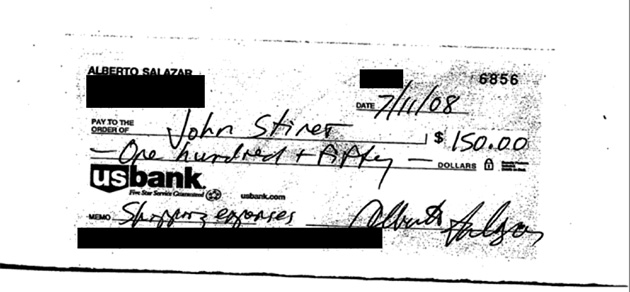 ALBERTO SALAZAR
6856
DATE 7/11/08
PAY TO THE
ORDER OF John Stiner $ 150.00
One hundred + fifty DOLLARS
usbank.
Five Star Service Guaranteed usbank.com
MEMO Shipping expenses Alberto Salazar